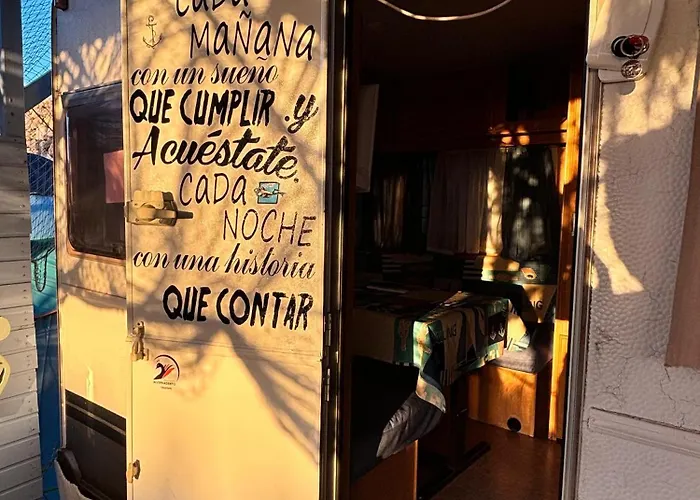 CADA
MAÑANA
con un sueño
QUE CUMPLIR .y
Acuéstate
CADA
NOCHE
con una historia
QUE CONTAR